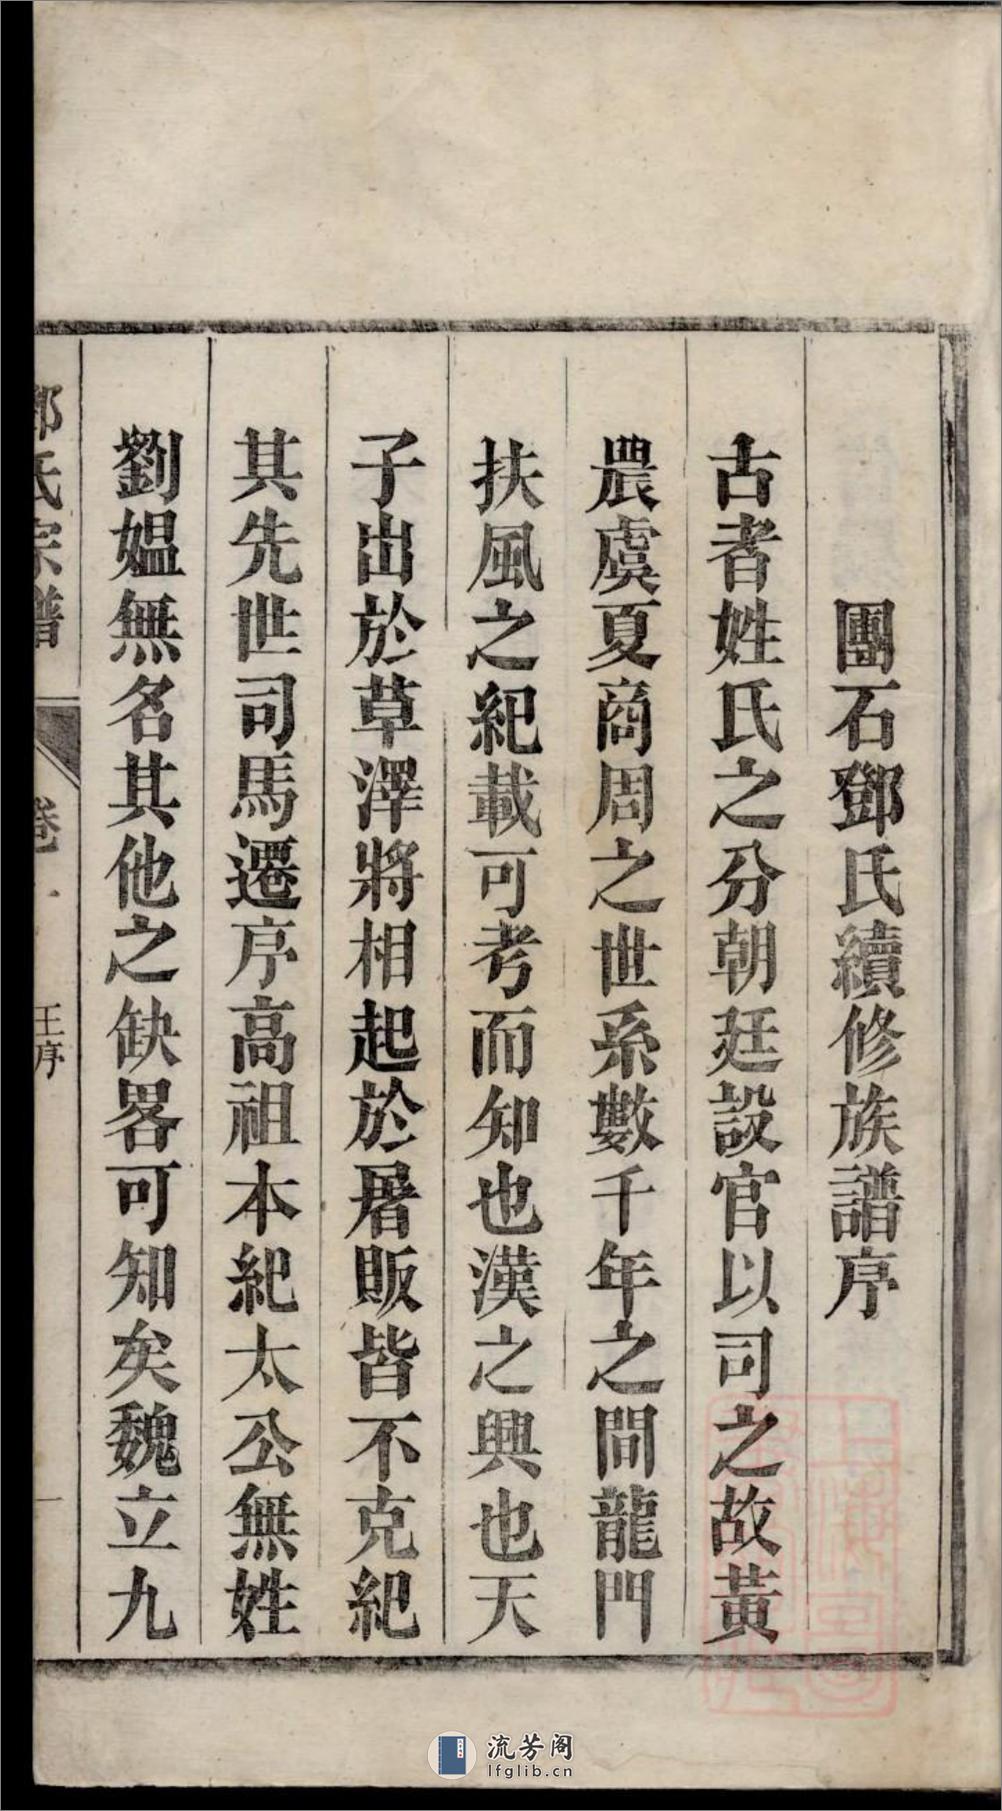 團石鄧氏續修族譜序
古者姓氏之分朝廷設官以司之故黃
農虞夏商周之世系數千年之間龍門
扶風之紀載可考而知也漢之興也天
子出於草澤將相起於屠販皆不克紀
其先世司馬遷序高祖本紀太公無姓
劉媼無名其他之缺畧可知矣魏立九
鄧氏宗譜
卷一
王序
一
流芳阁
lfglib.cn